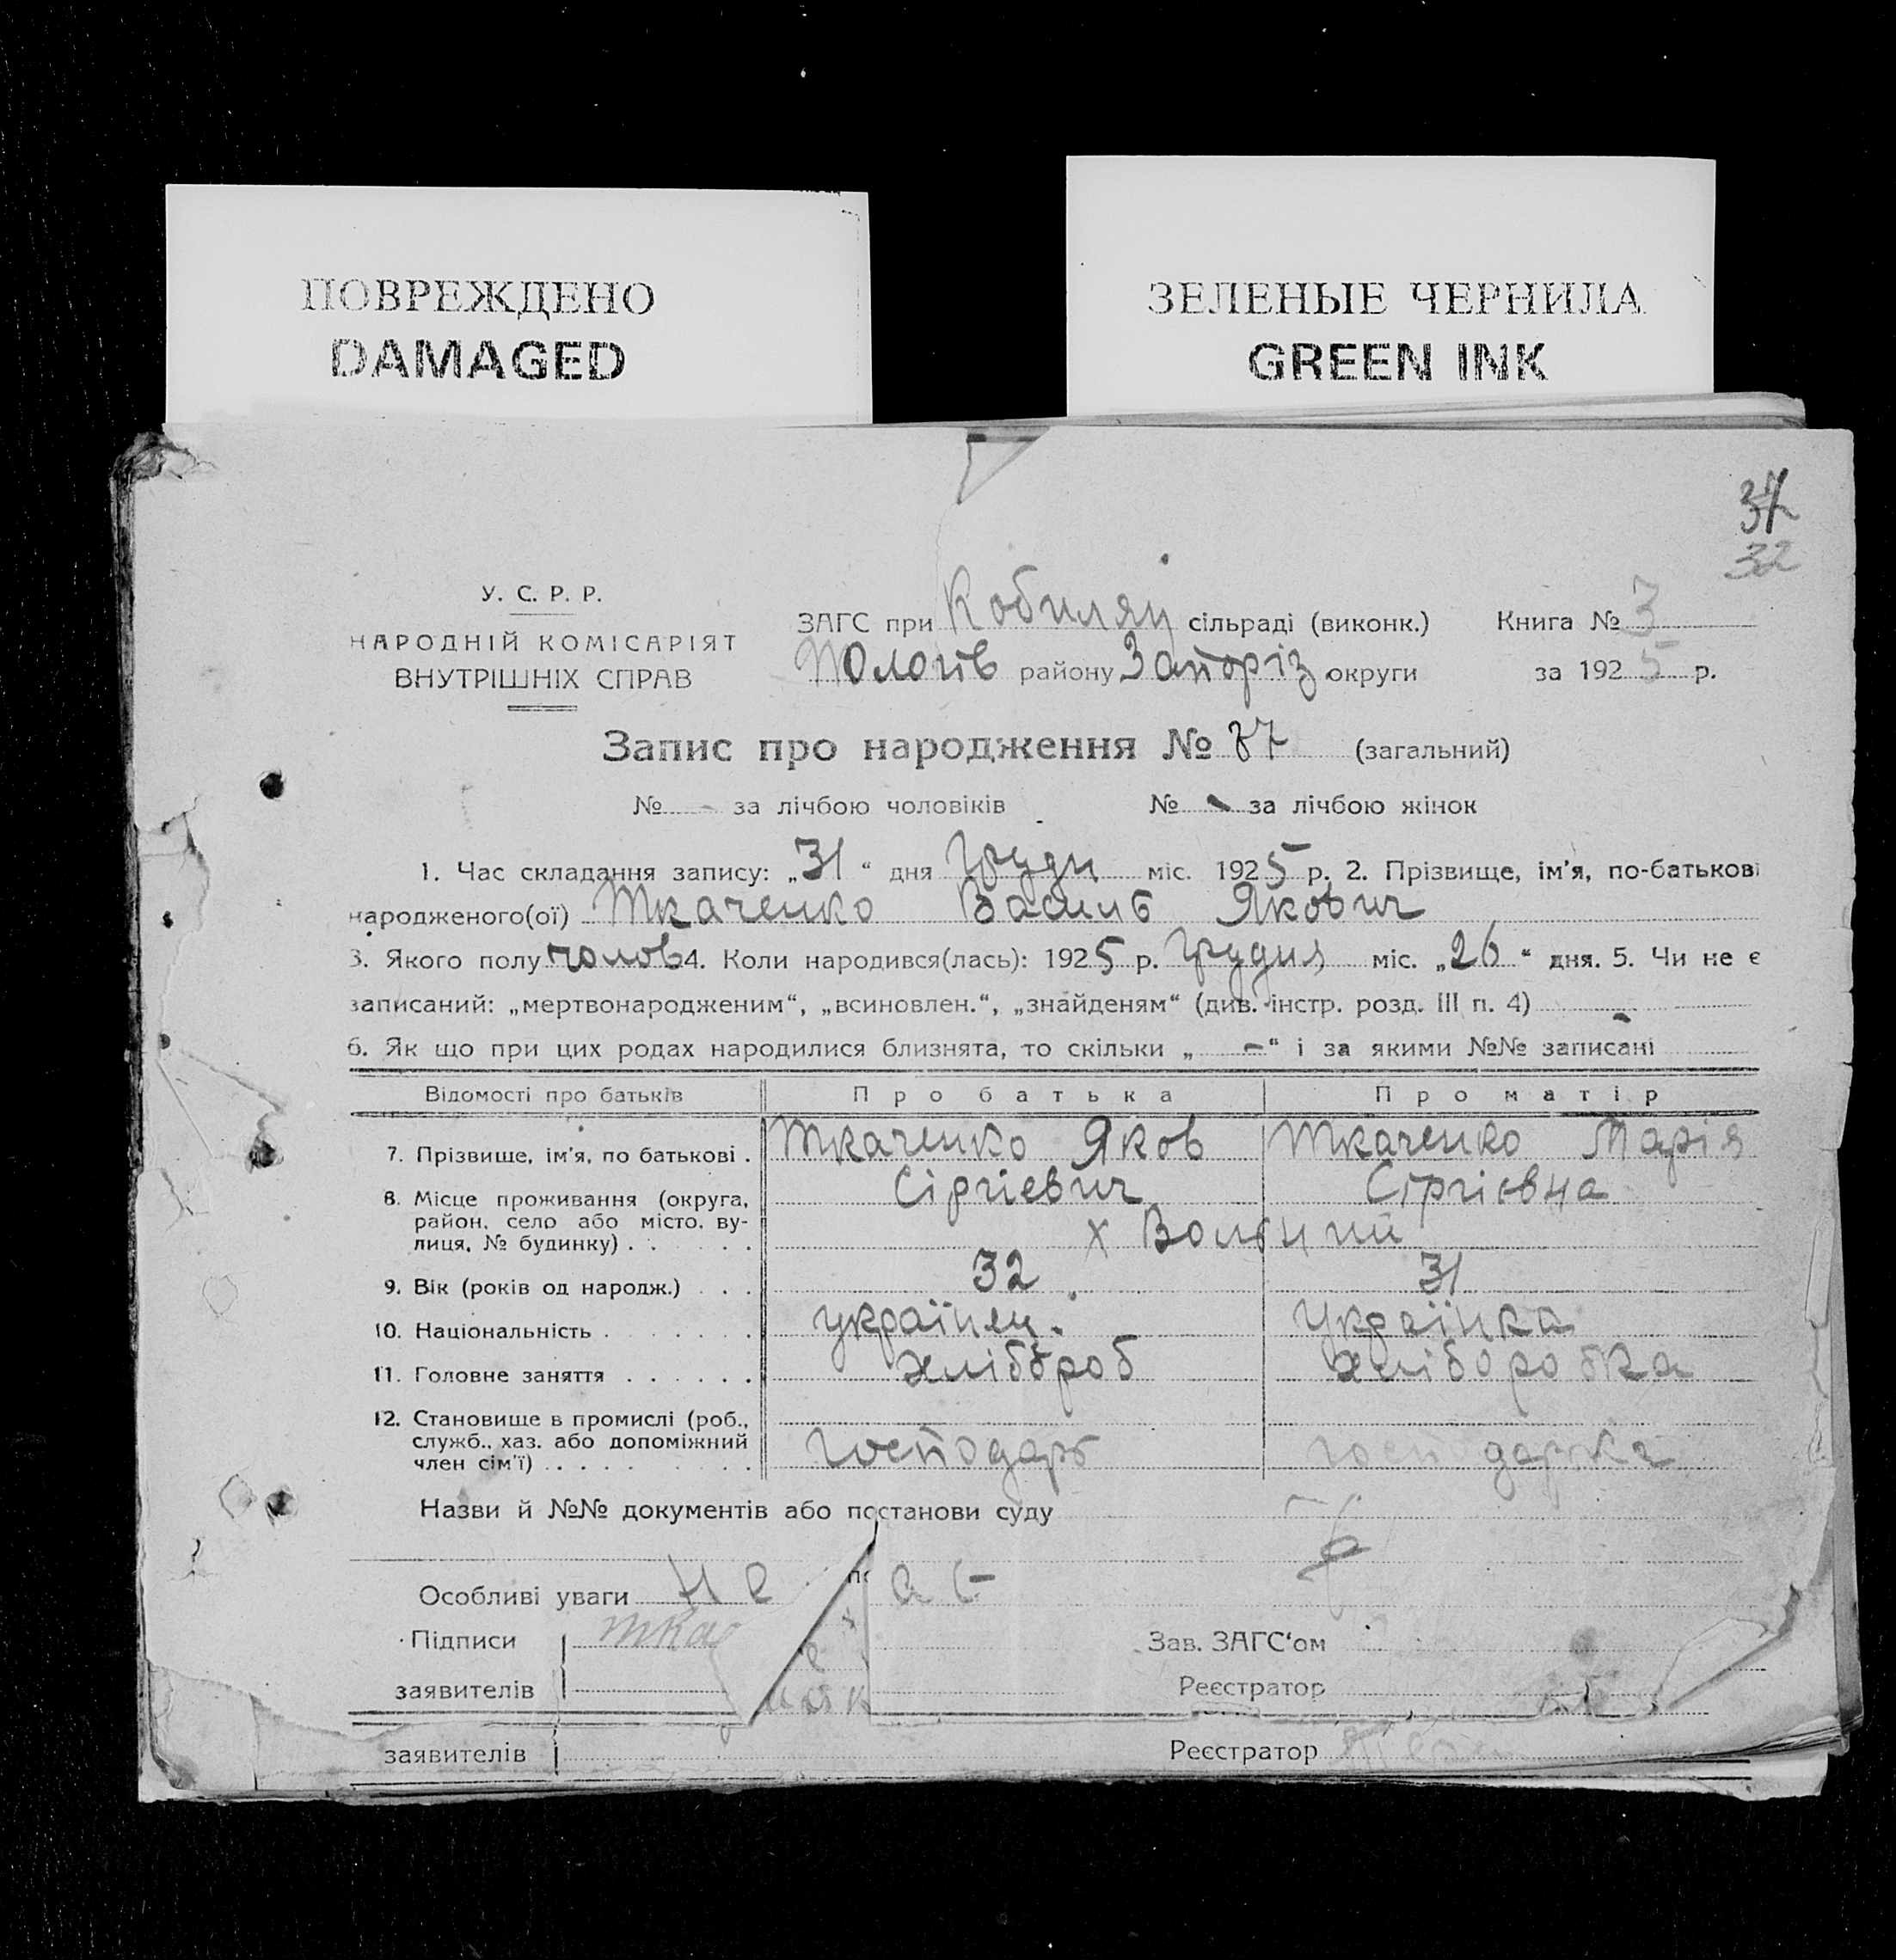 ПОВРЕЖДЕНО
DAMAGED
ЗЕЛЕНЫЕ ЧЕРНИЛА
GREEN INK
37
32
У. С. Р. Р.
НАРОДНІЙ КОМІСАРІЯТ
ВНУТРІШНІХ СПРАВ
ЗАГС при Кобиляц сільраді (виконк.) Книга № 3
Пологів району Запоріз округи за 1925 р.
Запис про народження № 87 (загальний)
№ - за лічбою чоловіків № - за лічбою жінок
1. Час складання запису: „31“ дня Грудн міс. 1925 р. 2. Прізвище, ім’я, по-батькові
народженого(ої) Ткаченко Василь Якович
3. Якого полу чолов 4. Коли народився(лась): 1925 р. Грудня міс. „26“ дня. 5. Чи не є
записаний: „мертвонародженим“, „всиновлен.“, „знайденям“ (див. інстр. розд. III п. 4) -
6. Як що при цих родах народилися близнята, то скільки „ - “ і за якими №№ записані
Відомості про батьків Про батька Про матір
7. Прізвище, ім’я, по батькові . Ткаченко Яков Ткаченко Марія
Сіргієвич Сіргієвна
8. Місце проживання (округа,
район, село або місто, ву-
лиця, № будинку) . . . . х Вольний
9. Вік (років од народж.) . . . 32 31
10. Національність . . . . . . . українец. Українка
11. Головне заняття . . . . . . хлібороб хліборобка
12. Становище в промислі (роб.,
служб., хаз. або допоміжний
член сім’ї) . . . . . . . . . господарь господарка
Назви й №№ документів або постанови суду
Особливі уваги не
Підписи Зав. ЗАГС‘ом
заявителів Реєстратор
заявителів Реєстратор